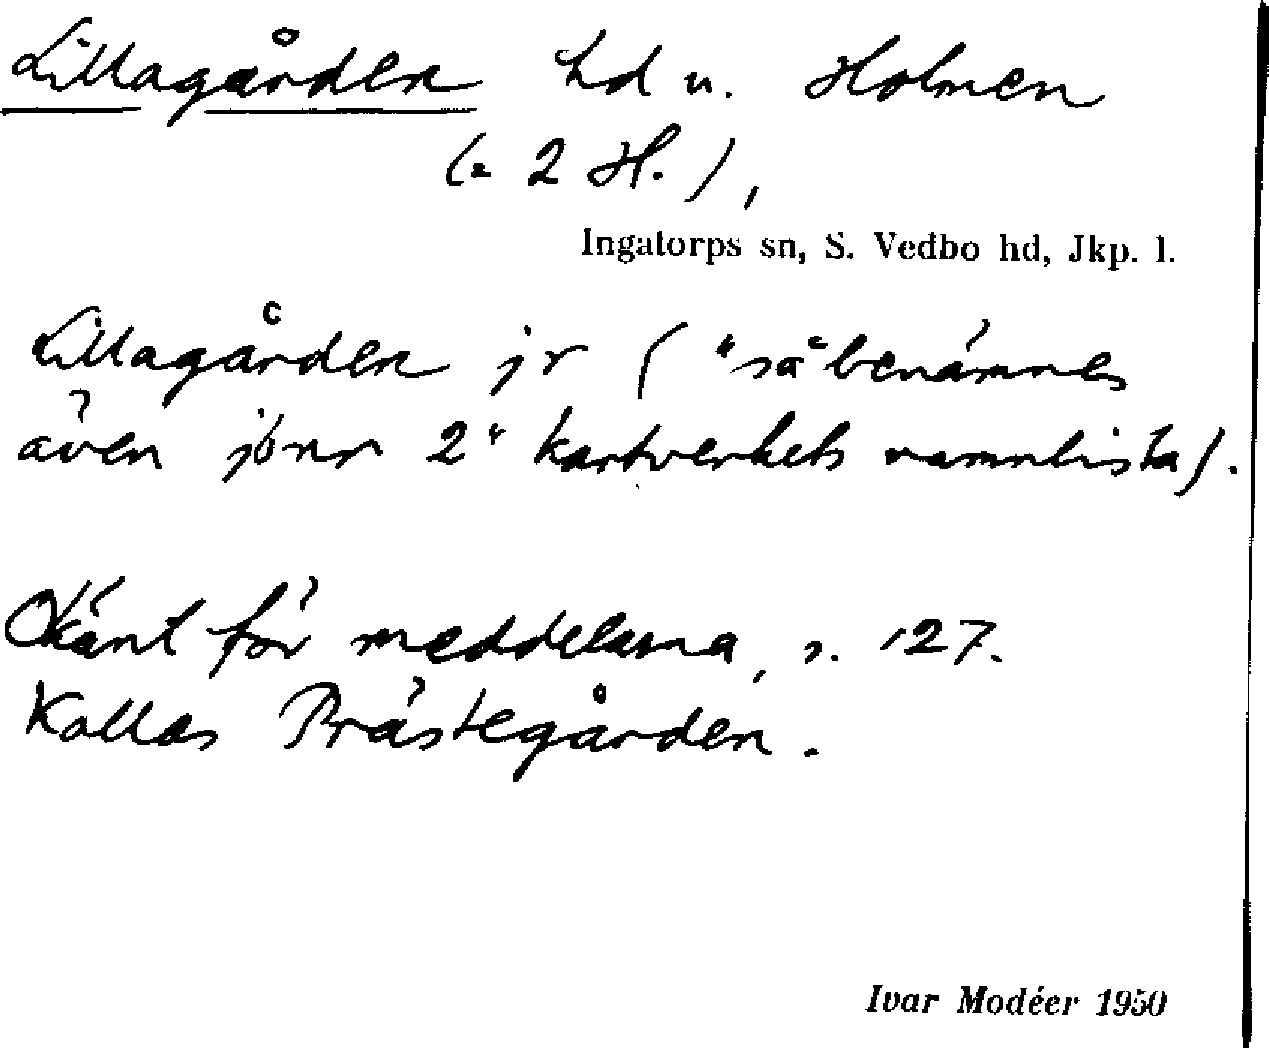 Lillagården hd u. Holmen
(= 2 H.),
Ingatorps sn, S. Vedbo hd, Jkp. l.
Lillagården jr ( "så benämnes
även jbnr 2" kartverkets namnlista).
Okänt för meddelarna, s. 127.
Kallas Prästegården.
Ivar Modéer 1950